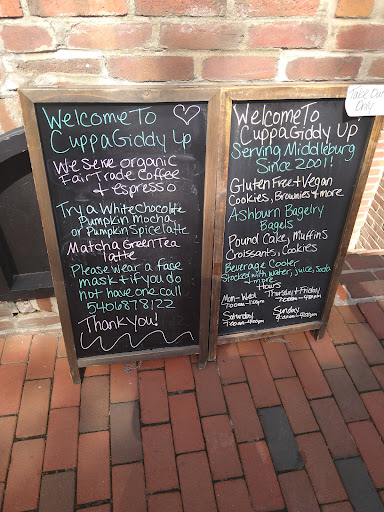 Welcome To
CuppaGiddy Up
We serve organic
Fair Trade Coffee
+ espresso
Try a White Chocolate
Pumpkin Mocha
or Pumpkin Spice latte
Matcha Green Tea
latte
Please wear a face
mask + if you do
not have one call
5406878122
Thank you!
Take Out
Only
Welcome To
CuppaGiddy Up
Serving Middleburg
Since 2001!
Gluten Free + Vegan
Cookies, Brownies + more
Ashburn Bagelry
Bagels
Pound Cake, Muffins
Croissants, Cookies
Beverage Cooler
Stocked with water, juice, soda
+ more
Hours
Mon-Wed Thursday + Friday
Saturday Sunday